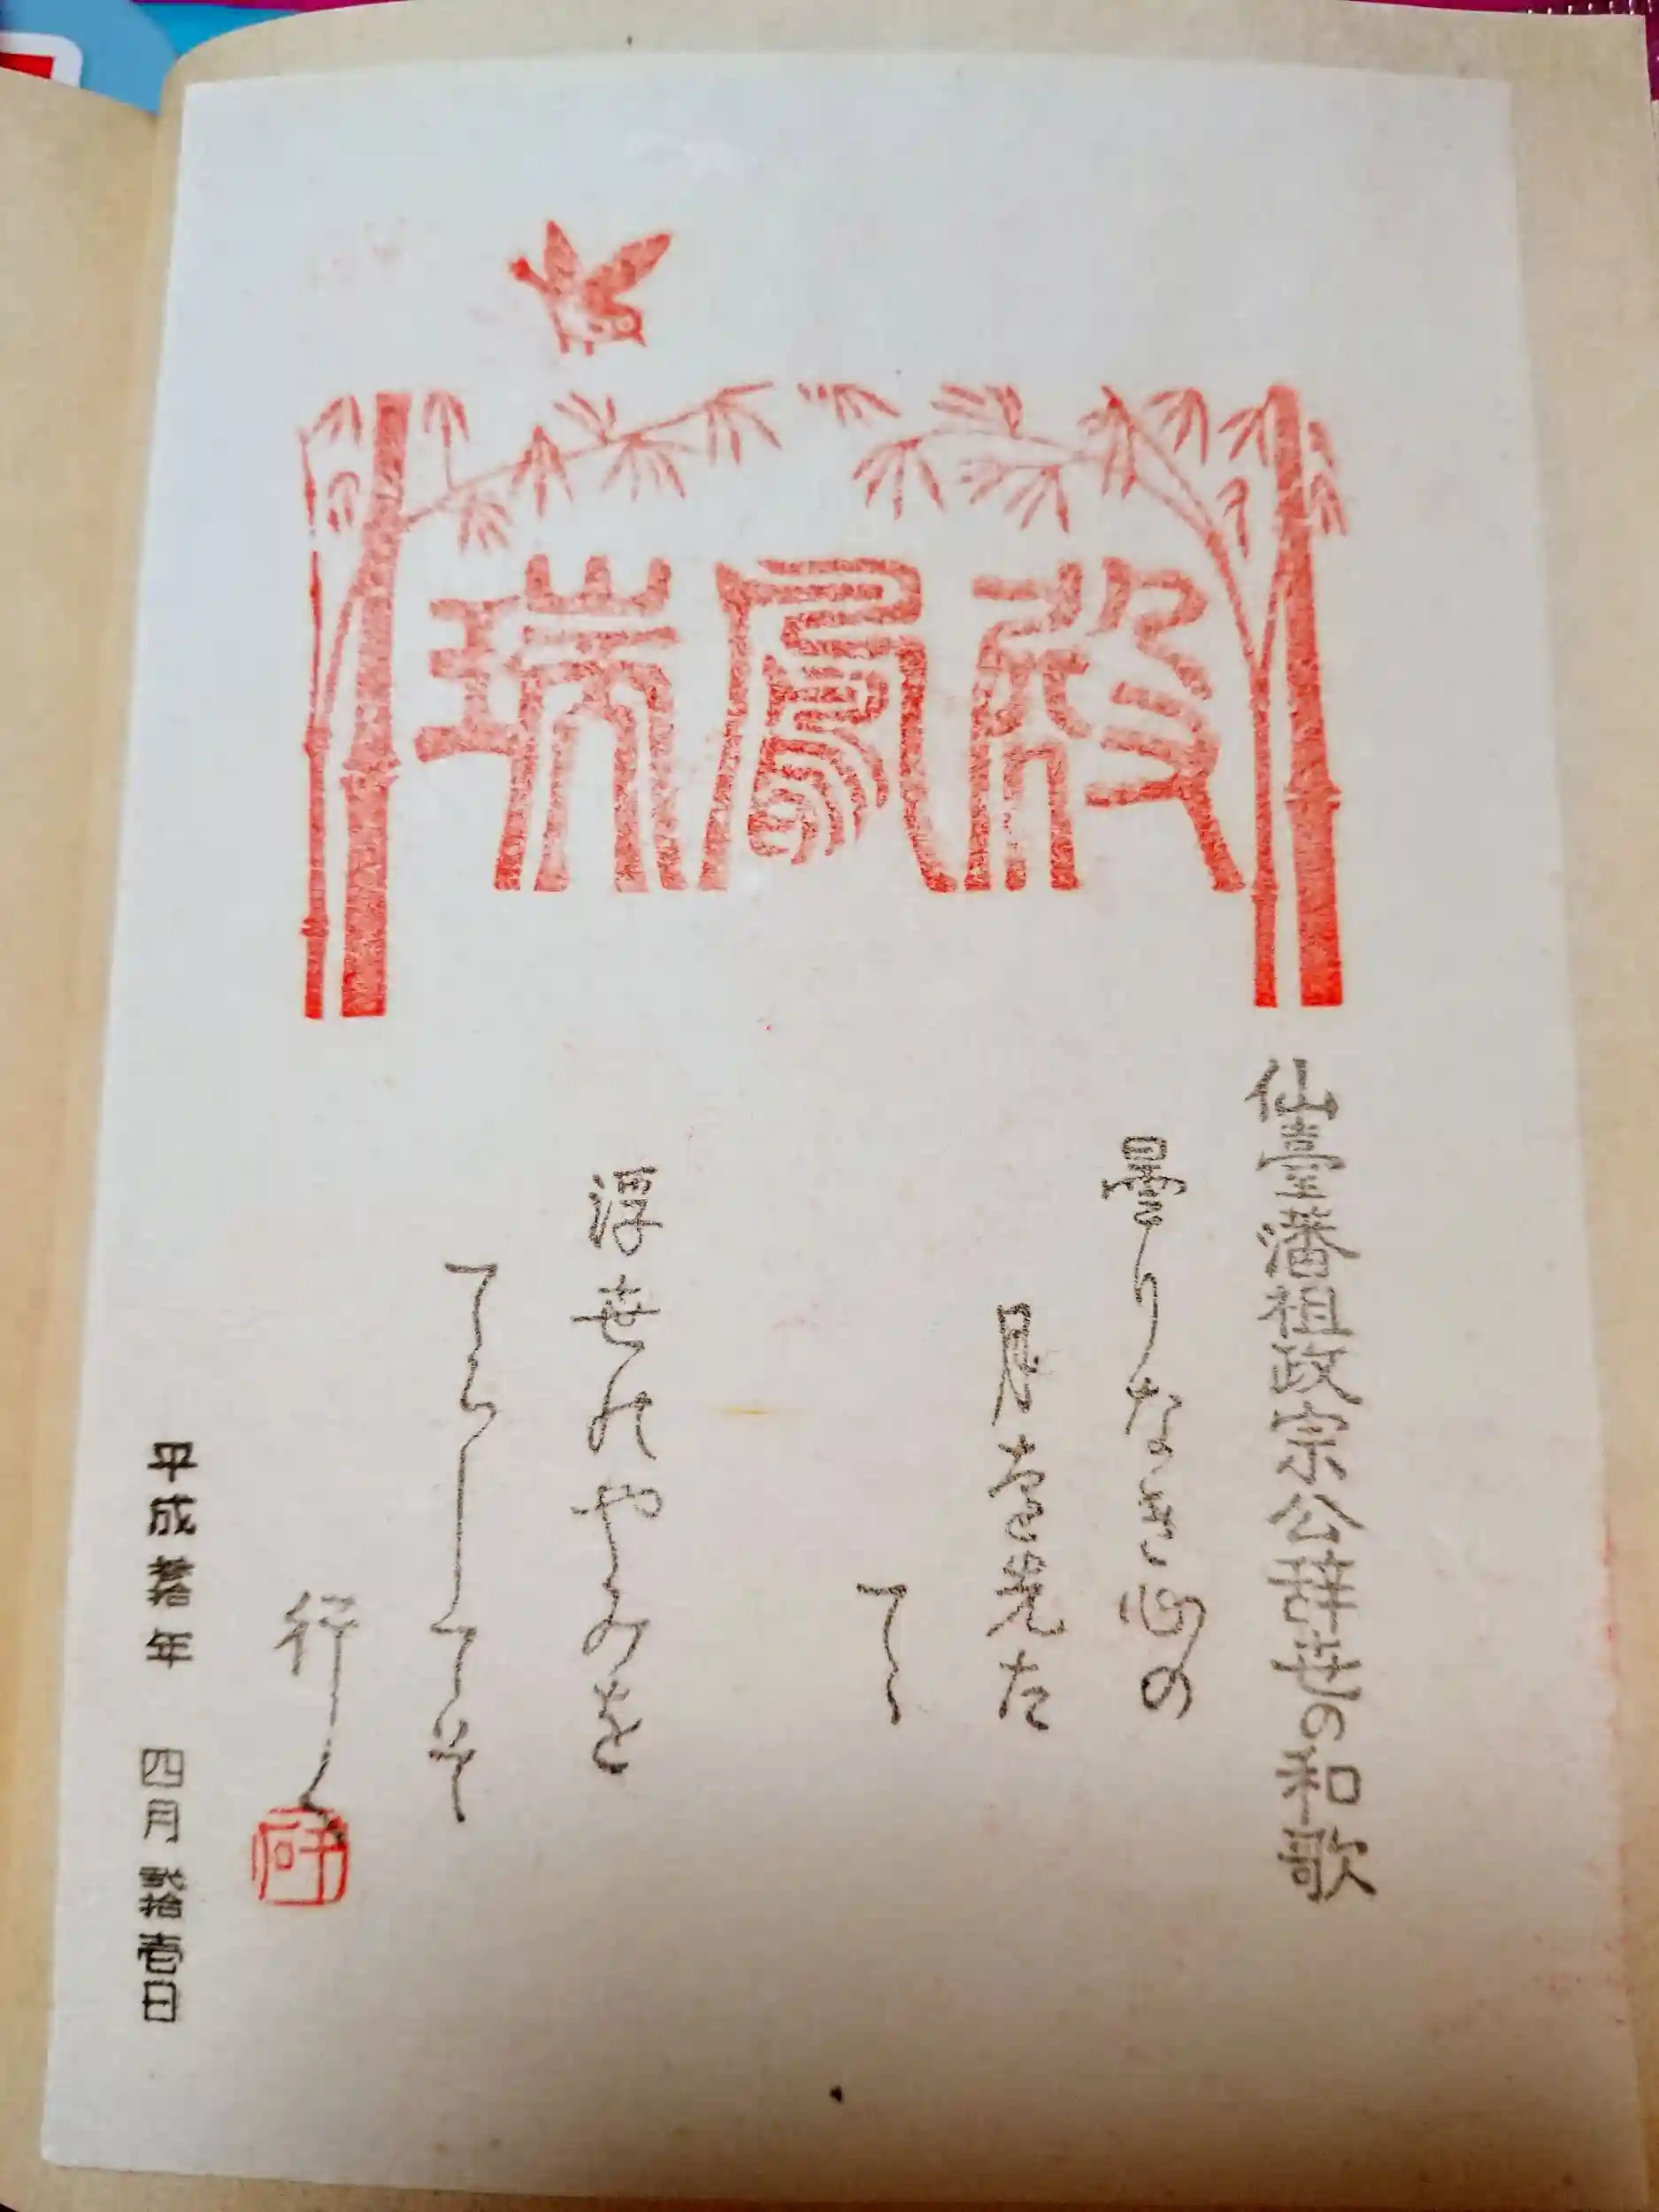 瑞鳳殿
仙臺藩祖政宗公辞世の和歌
曇りなき心の
月を先た
てゝ
浮世のやみを
てらしてそ
行く
平成参拾年 四月弐拾壱日